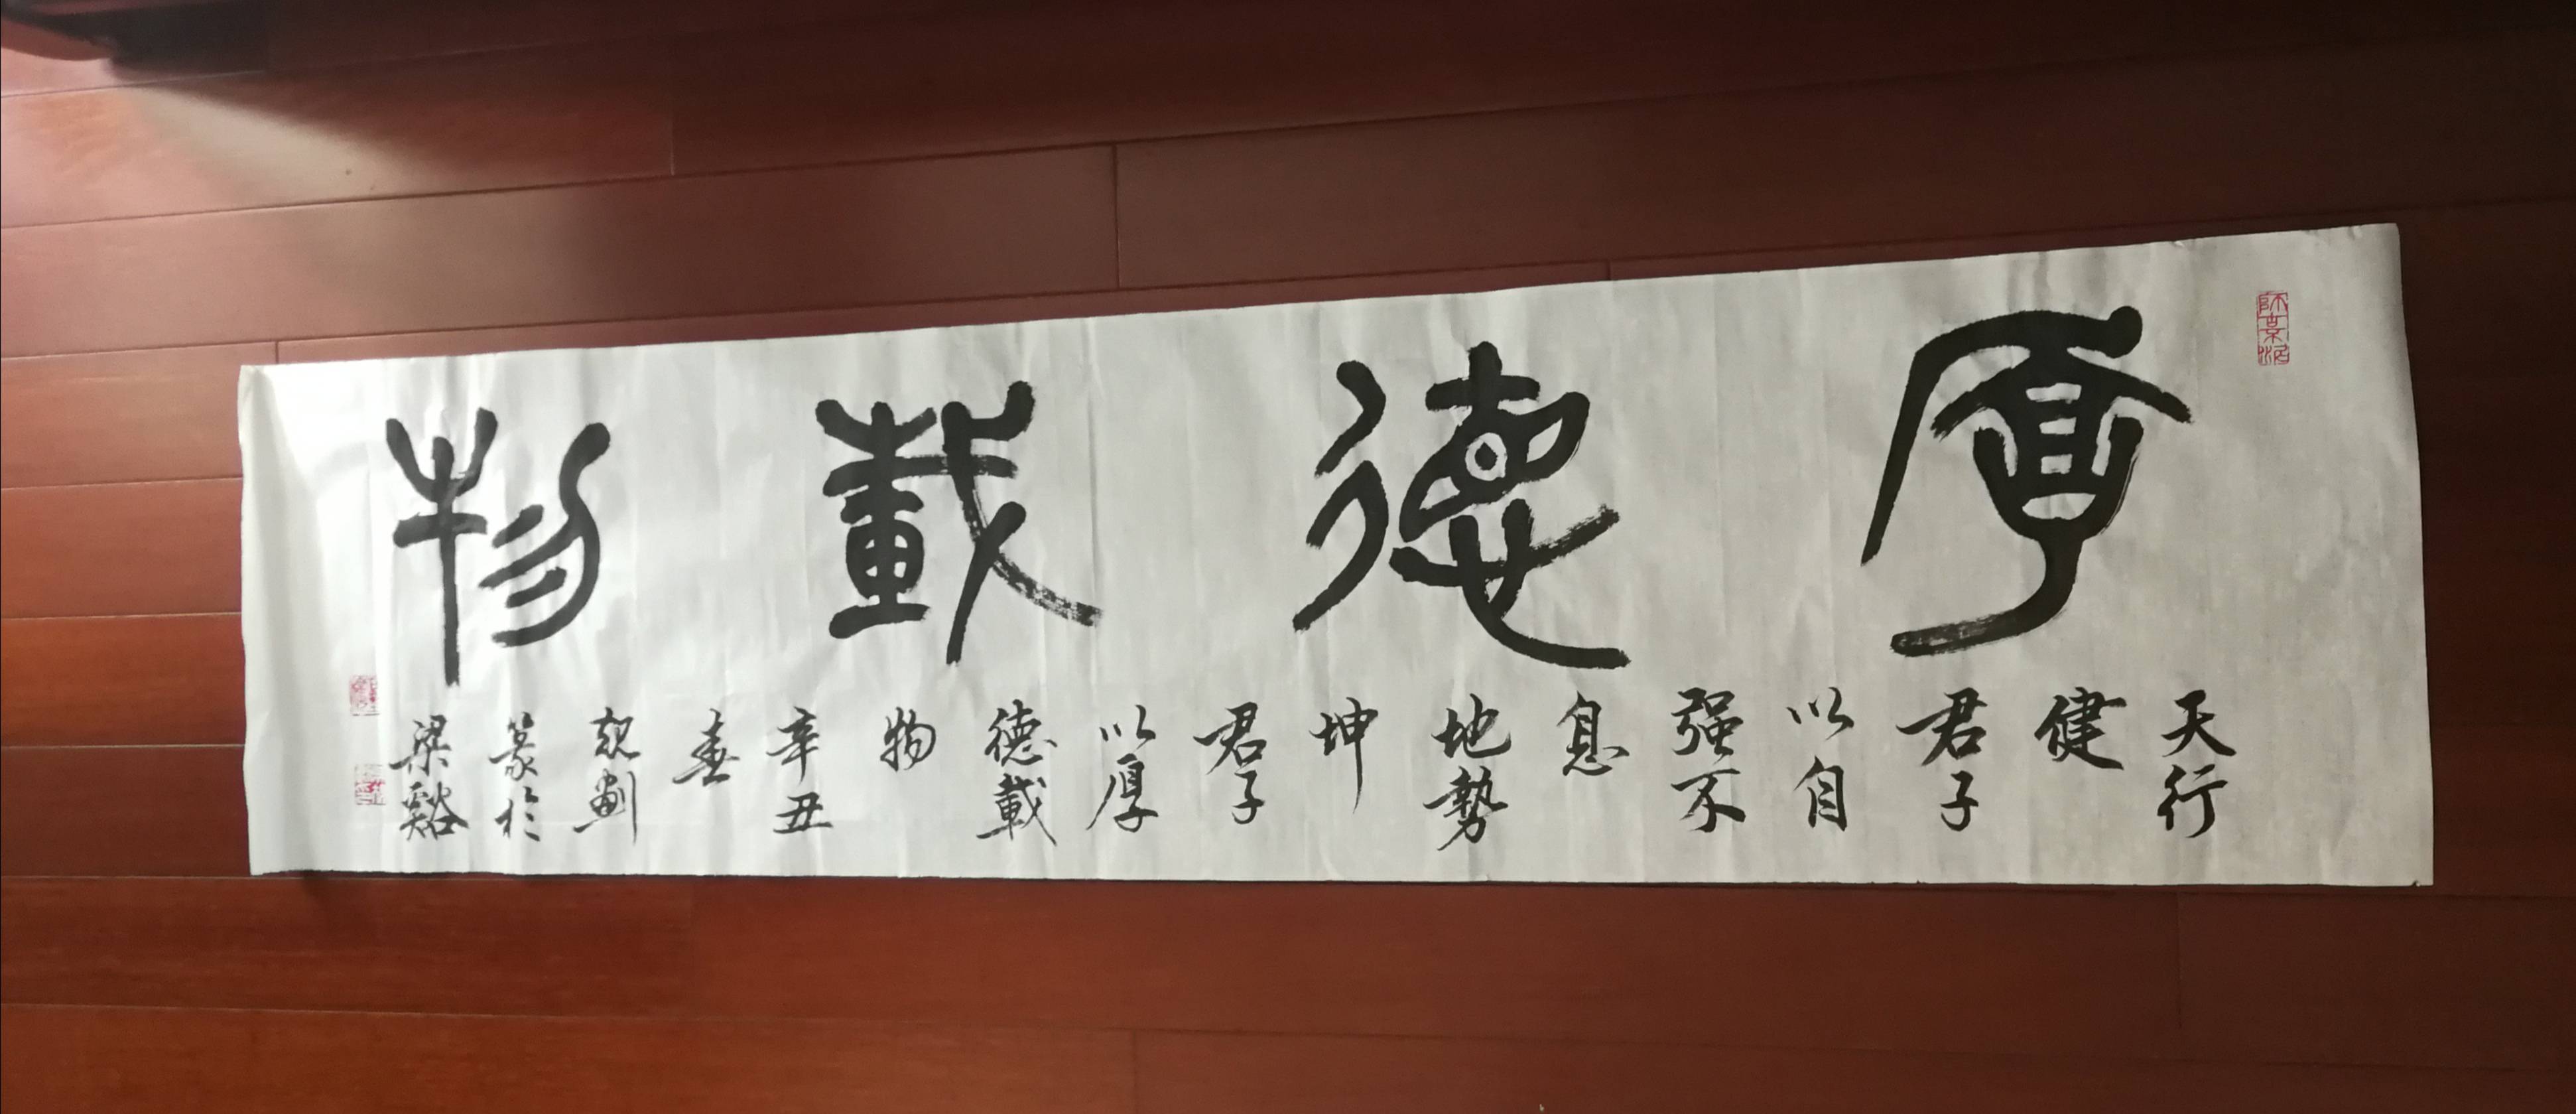 厚德載物
天行
健
君子
以自
强不
息
地勢
坤
君子
以厚
德載
物
辛丑
春
篆於
梁谿